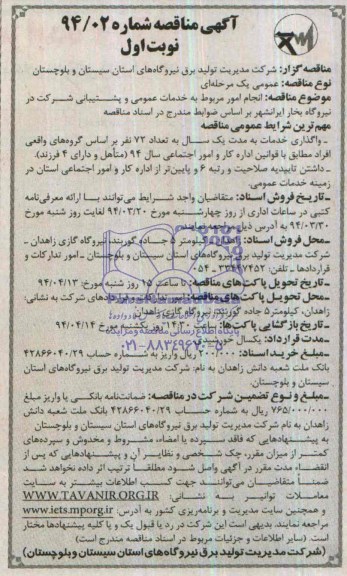 آگهی مناقصه شماره ۹۴/۰۲
نوبت اول
مناقصه گزار: شرکت مدیریت تولید برق نیروگاه‌های استان سیستان و بلوچستان
نوع مناقصه: عمومی یک مرحله‌ای
موضوع مناقصه: انجام امور مربوط به خدمات عمومی و پشتیبانی شرکت در
نیروگاه بخار ایرانشهر بر اساس ضوابط مندرج در اسناد مناقصه
مهم‌ترین شرایط عمومی مناقصه
ـ واگذاری خدمات به مدت یک سال به تعداد ۷۲ نفر بر اساس گروه‌های واقعی
افراد مطابق با قوانین اداره کار و امور اجتماعی سال ۹۴ (متأهل و دارای ۴ فرزند).
ـ داشتن تاییدیه صلاحیت و رتبه ۶ و پایین‌تر از اداره کار و امور اجتماعی استان در
زمینه خدمات عمومی.
ـ تاریخ فروش اسناد: متقاضیان واجد شرایط می‌توانند با ارائه معرفی‌نامه
کتبی در ساعات اداری از روز چهارشنبه مورخ ۹۴/۰۳/۲۰ لغایت روز شنبه مورخ
به آدرس ذیل مراجعه نمایند.
ـ محل فروش اسناد: زاهدان، کیلومتر ۵ جاده گوربند، نیروگاه گازی زاهدان ـ
شرکت مدیریت تولید برق نیروگاه‌های استان سیستان و بلوچستان ـ امور تدارکات و
قراردادها ـ تلفن: ۰۵۴
ـ تاریخ تحویل پاکت‌های مناقصه: تا ساعت ۱۵ روز شنبه مورخ: ۹۴/۰۴/۱۳
ـ محل تحویل پاکت‌های مناقصه: امور تدارکات و قراردادهای شرکت به نشانی:
زاهدان، کیلومتر ۵ جاده گوربند، نیروگاه گازی زاهدان
ـ تاریخ بازگشایی پاکت‌ها: ساعت ۱۴/۳۰ روز یکشنبه مورخ ۹۴/۰۴/۱۴
ـ مدت قرارداد: یکسال خورشیدی
ـ مبلغ خرید اسناد: ۲۰۰/۰۰۰ ریال واریز به شماره حساب ۴۲۸۶۶۰۴۰/۲۹
بانک ملت شعبه دانش زاهدان به نام: شرکت مدیریت تولید برق نیروگاه‌های استان
سیستان و بلوچستان.
ـ مبلغ و نوع تضمین شرکت در مناقصه: ضمانت‌نامه بانکی یا واریز مبلغ
۷۶۵/۰۰۰/۰۰۰ ریال به شماره حساب ۴۲۸۶۶۰۴۰/۲۹ بانک ملت شعبه دانش
زاهدان به نام شرکت مدیریت تولید برق نیروگاه‌های استان سیستان و بلوچستان
به پیشنهادهایی که فاقد سپرده یا امضاء، مشروط و مخدوش و سپرده‌های
کمتر از میزان مقرر، چک شخصی و نظایر آن و پیشنهادهایی که پس از
انقضاء مدت مقرر در آگهی واصل شود مطلقا ترتیب اثر داده نخواهد شد
ضمناً متقاضیان می‌توانند جهت کسب اطلاعات بیشتر به سایت
معاملات توانیر به نشانی: WWW.TAVANIR.ORG.IR
و همچنین سایت مدیریت و برنامه‌ریزی کشور به آدرس: www.iets.mporg.ir
مراجعه نمایند. بدیهی است این شرکت در رد یا قبول یک و یا کلیه پیشنهادها مختار
است. (سایر اطلاعات و جزئیات مربوط در اسناد مناقصه مندرج است)
(شرکت مدیریت تولید برق نیروگاه‌های استان سیستان و بلوچستان)
پایگاه اطلاع رسانی مناقصه و مزایده